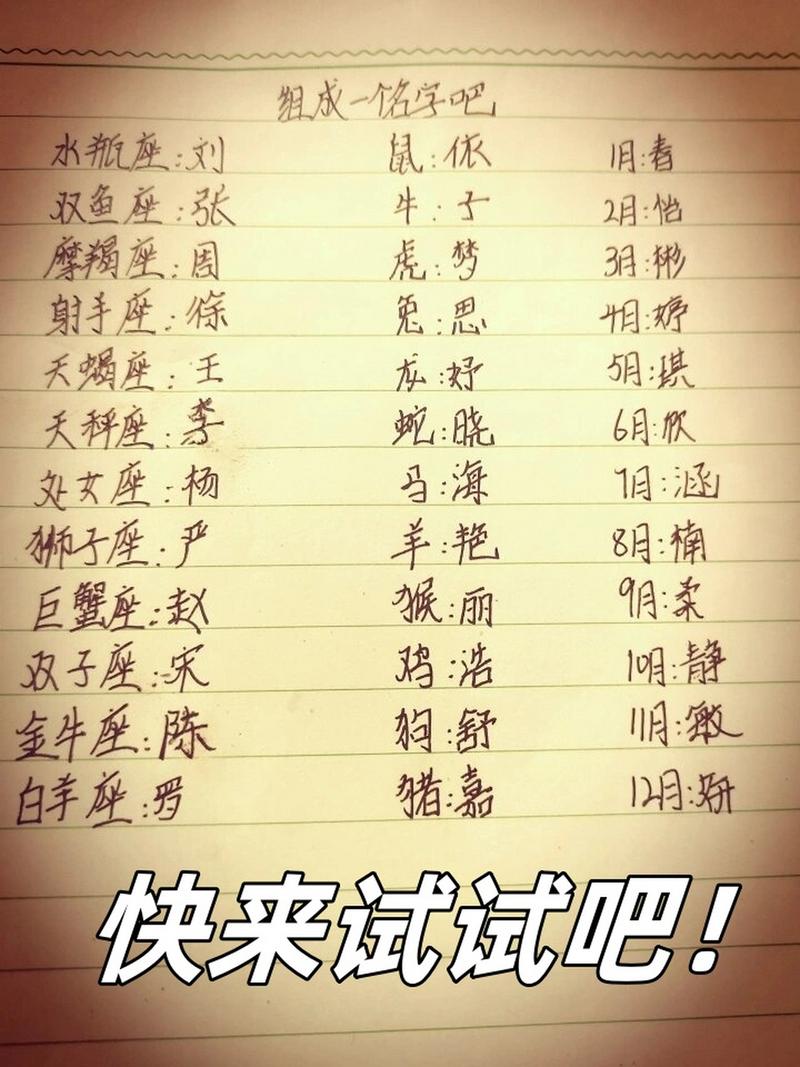 组成一个名字吧
水瓶座:刘 鼠:依 1月:春
双鱼座:张 牛:子 2月:怡
摩羯座:周 虎:梦 3月:彬
射手座:徐 兔:思 4月:婷
天蝎座:王 龙:妤 5月:琪
天秤座:李 蛇:晓 6月:欣
处女座:杨 马:海 7月:涵
狮子座:严 羊:艳 8月:楠
巨蟹座:赵 猴:丽 9月:柔
双子座:宋 鸡:浩 10月:静
金牛座:陈 狗:舒 11月:敏
白羊座:罗 猪:嘉 12月:妍
快来试试吧!